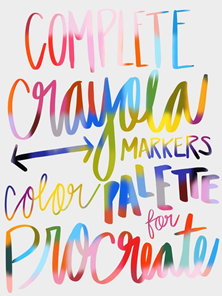 COMPLETE
crayola
MARKERS
color PALETTE
for
PROCreate